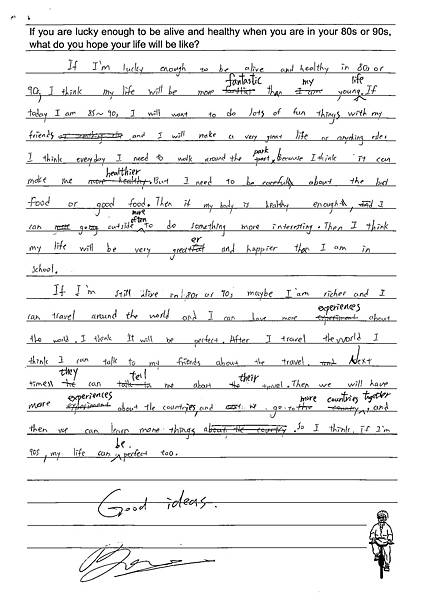 If you are lucky enough to be alive and healthy when you are in your 80s or 90s,
what do you hope your life will be like?
If I'm lucky enough to be alive and healthy in 80s or
fantastic my life
90, I think my life will be more than young. If
today I am 85~90, I will want to do lots of fun things with my
friends and I will make a very great life or anything else.
park
I think everyday I need to walk around the , because I think it can
healthier
make me . But I need to be about the bad
food or good food. Then if my body is healthy enough, I
more often
can outside to do something more interesting. Then I think
er
my life will be very great and happier than I am in
school.
If I'm still alive in 80s or 90, maybe I am richer and I
experiences
can travel around the world and I can have more about
the world. I think It will be perfect. After I travel the world I
think I can talk to my friends about the travel. Next
they tell their
times can me about travel. Then we will have
experiences more countries together
more about the countries, and we go to , and
then we can learn more things . So I think, if I'm
be
90s, my life can perfect too.
Good ideas.